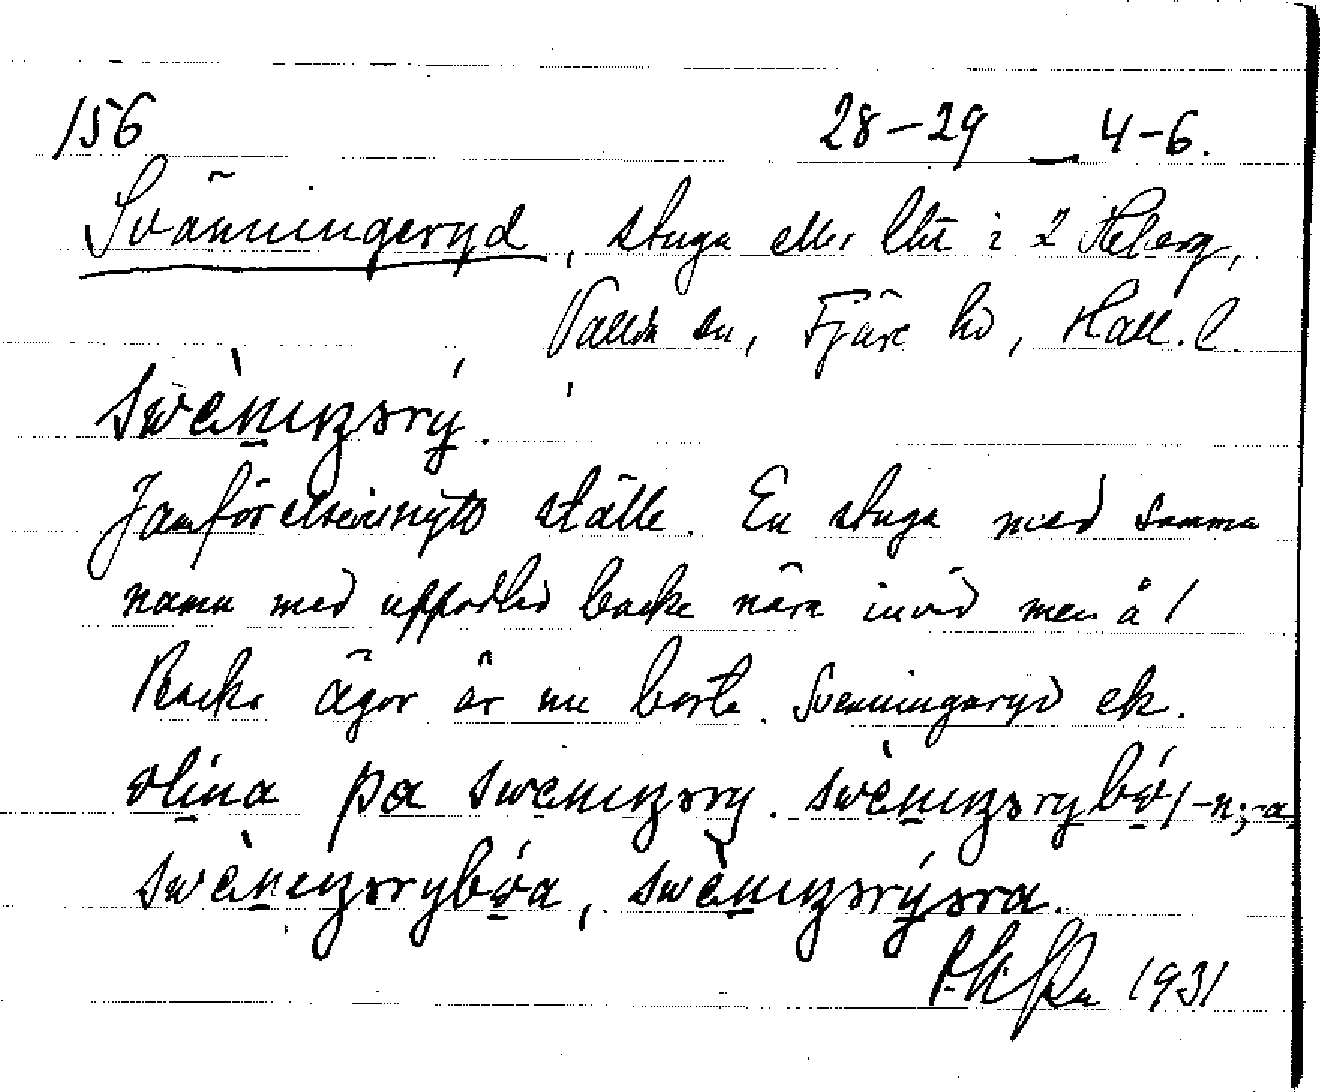 156 28-29 _ 4-6.
Svänningeryd, stuga eller lht i 2 Heberg,
Vallda sn, Fjäre hd, Hall. l.
swènıŋsrý.
Jämförelsevis nytt ställe. En stuga med samma
namn med uppodlad backe nära invid men å /
Backa ägor är nu borta. Svenningaryd ek.
olina pa swenıŋsry. swènıŋsrybó/-n; -a,
swènıŋsrybóa, swènıŋsrýsra.
1931